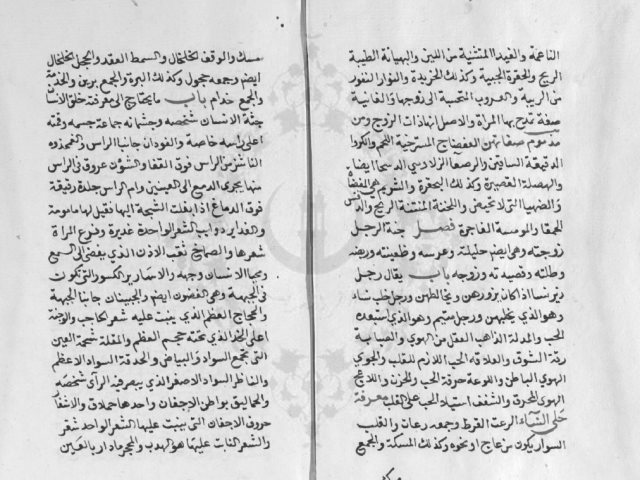 الناعمة والغيدا المتثنية من اللين والبهنانة الطيبة
الريح والخفرة الحيية وكذلك الخريدة والنوار النفور
من الريبة والعروب المتحببة الى زوجها والغانية
صفة تمدح بها المراة والاصل انها ذات الزوج ومن
مذموم صفاتهن العفضاج المسترخية اللحم والكروا
الدقيقة الساقين والرصعا الزلا وسى الرسحا ايضا
والبهصلة القصيرة وكذلك البحترة والشريم هي المفضاة
والضهيا التى لا تحيض واللخنة المنتنة الريح والدفنس
الحمقا والمومسة الفاجرة فصل حنة الرجل
زوجته وهى ايضا حليلته وعرسه وظعينته وربضه
وطلته وقعيدته وزوجه باب يقال رجل
زير نسا اذا كان يزورهن ويخالطهن ورجل خلب نساء
وهو الذي يخلبهن ورجل متيم وهو الذي استعبده
الحب والمدله الذاهب العقل من الهوي والصبابة
رقة الشوق والعلاقه الحب اللازم للقلب والجوي
الهوي الباطن واللوعة حرقة الحب والحزن واللاعج
الهوي المحرق والشغف استيلا الحب على القلب معرفة
حلى النساء الرعث القرط وجمعه رعاث والقلب
السوار يكون من عاج او نحوه وكذلك المسكة والجمع
مسك والوقف الخلخال والسمط العقد والحجل الخلخال
ايضا وجمعه حجول وكذلك البرة والجمع برين والخدمة
والجمع خدام باب ما يحتاج الى معرفة خلق الانسان
جثة الانسان شخصه وجثمانه جماعة جسمه وقمته
اعلى راسه خاصة والفودان جانبا الراس والقمحدوة
الناشز من الراس فوق القفا والشؤن عروق فى الراس
منها يجري الدمع الى العينين وام الراس جلدة رقيقة
فوق الدماغ اذا بلغت الشجة اليها نقيل لها مامومة
والغداير ذوايب الشعر الواحدة غديرة وفروع المراة
شعرها والصماخ ثقب الاذن الذي يفضى الى السمع
ومحيا الانسان وجهه والاسارير الكسور التى تكون
فى الجبهة وهى الغضون ايضا والجبينان جانبا الجبهة
والحجاج العظم الذي ينبت عليه شعر الحاجب والوجنة
اعلى الخد الذي تحته حجم العظم والمقلة شحمة العين
التى تجمع السواد والبياض والحدقة السواد الاعظم
والناظر السواد الاصغر الذي يبصر فيه الرآى شخصه
والحماليق بواطن الاجفان واحدها حملاق والاشفار
حروف الاجفان التى ينبت عليها الشعر الواحد شفر
والشعر النابت عليها هو الهدب والمحجر ما دار بالعين